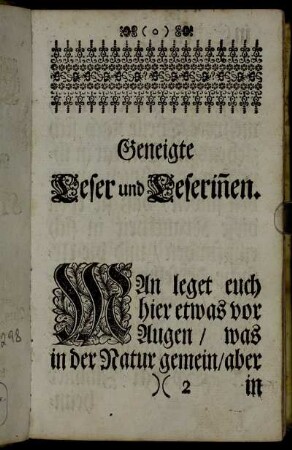 ( o )
Geneigte
Leser und Leserin̄en.
MAn leget euch
hier etwas vor
Augen / was
in der Natur gemein / aber
)( 2 in
298